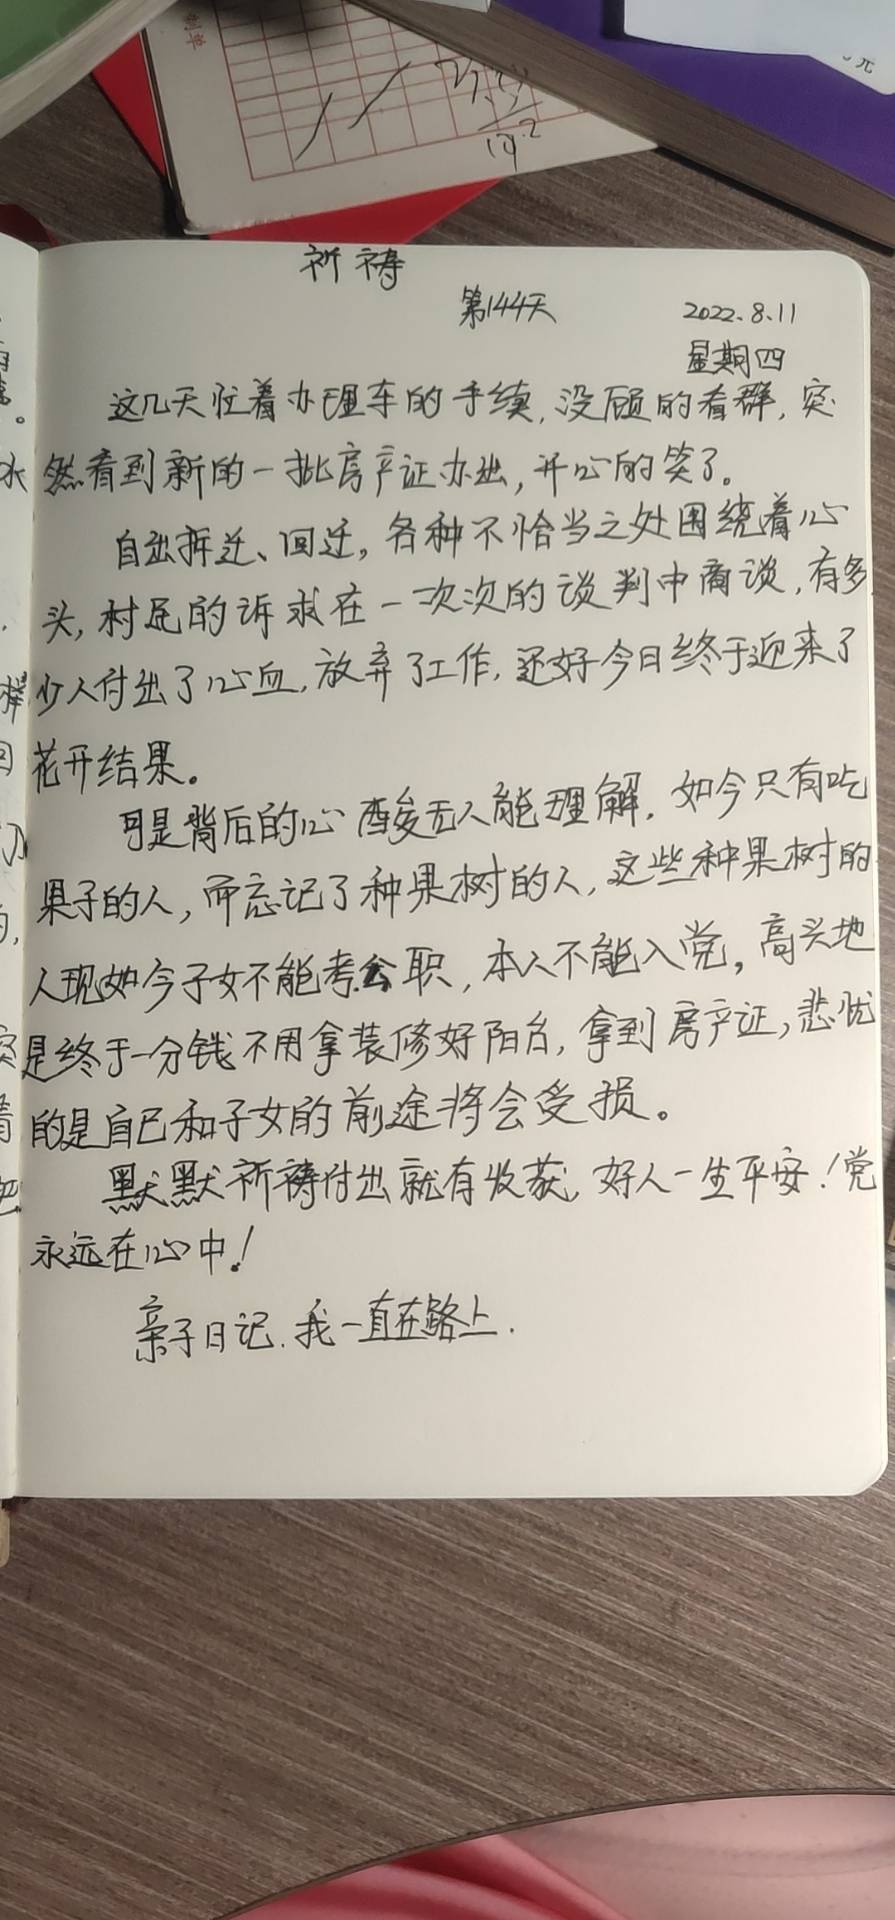 祈祷
第144天
2022.8.11
星期四
这几天忙着办理车的手续,没顾的看群,突
然看到新的一批房产证办出,开心的笑了。
自出拆迁、回迁,各种不恰当之处围绕着心
头,村民的诉求在一次次的谈判中商谈,有多
少人付出了心血,放弃了工作,还好今日终于迎来了
花开结果。
可是背后的心酸无人能理解,如今只有吃
果子的人,而忘记了种果树的人,这些种果树的
人现如今子女不能考公职,本人不能入党,高兴地
是终于一分钱不用拿装修好阳台,拿到房产证,悲忧
的是自己和子女的前途将会受损。
默默祈祷付出就有收获,好人一生平安!党
永远在心中!
亲子日记.我一直在路上.